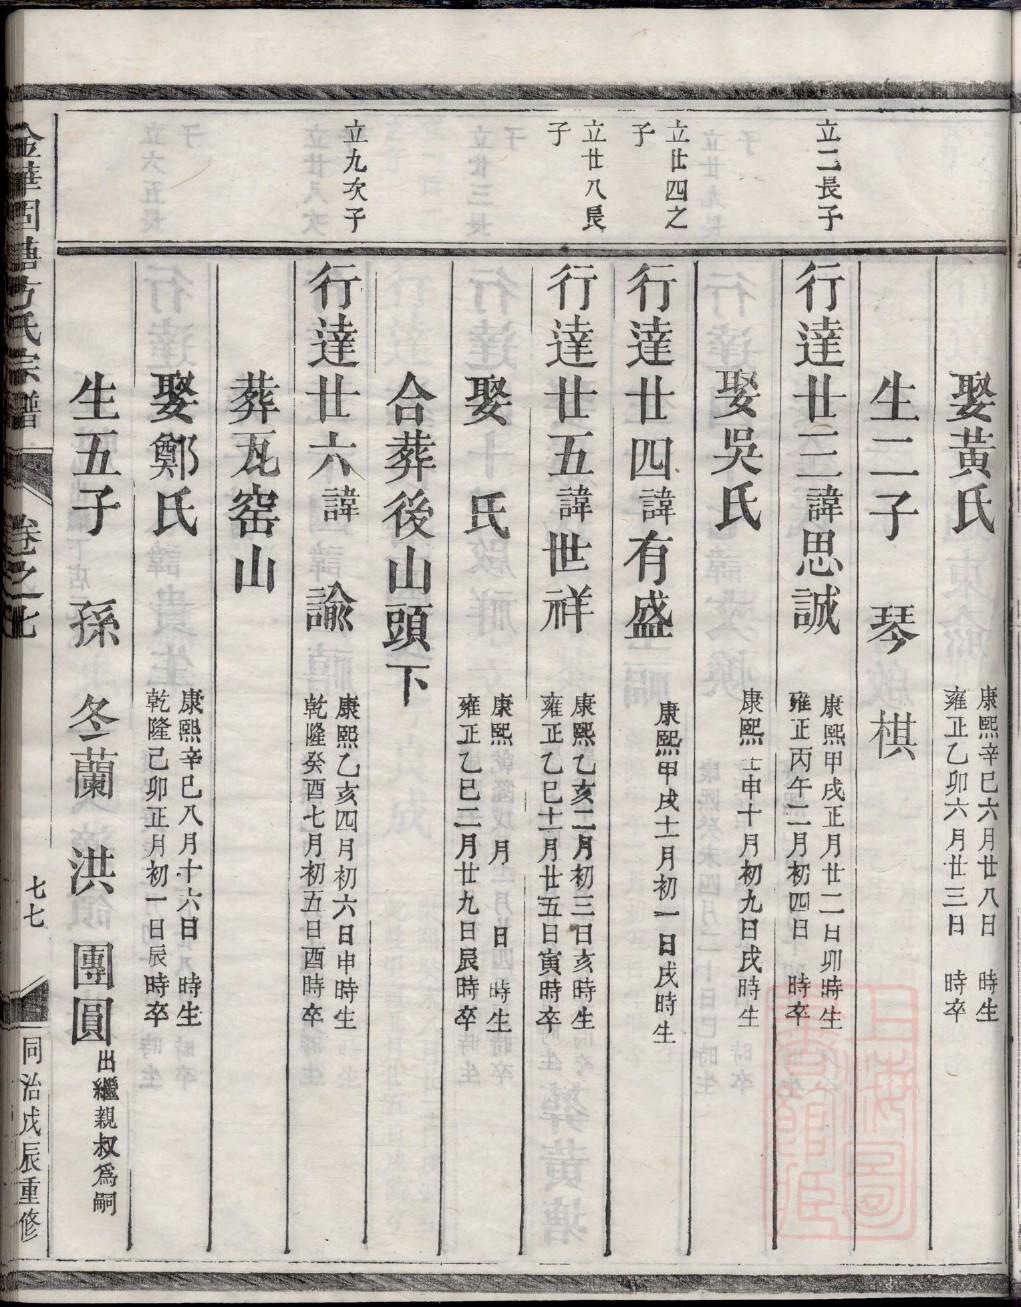 娶黃氏 康熙辛巳六月廿八日 時生
雍正乙卯六月廿三日 時卒
生二子 琴 棋
立二長子
行達廿三諱思誠 康熙甲戌正月廿二日卯時生
雍正丙午二月初四日 時卒
娶吳氏 康熙壬申十月初九日戌時生
立廿四之子
行達廿四諱有盛 康熙甲戌十二月初一日戌時生
立廿八長子
行達廿五諱世祥 康熙乙亥二月初三日亥時生
雍正乙巳十二月廿五日寅時卒
娶 氏 康熙 年 月 日 時生
雍正乙巳二月廿九日辰時卒
合葬後山頭下
立九次子
行達廿六諱 諭 康熙乙亥四月初六日申時生
乾隆癸酉七月初五日酉時卒
葬瓦窑山
娶鄭氏 康熙辛巳八月十六日 時生
乾隆己卯正月初一日辰時卒
生五子 孫 冬蘭 洪 團圓出繼親叔為嗣
金華固塘方氏宗譜 卷之七 七七 同治戊辰重修
上海圖書館藏